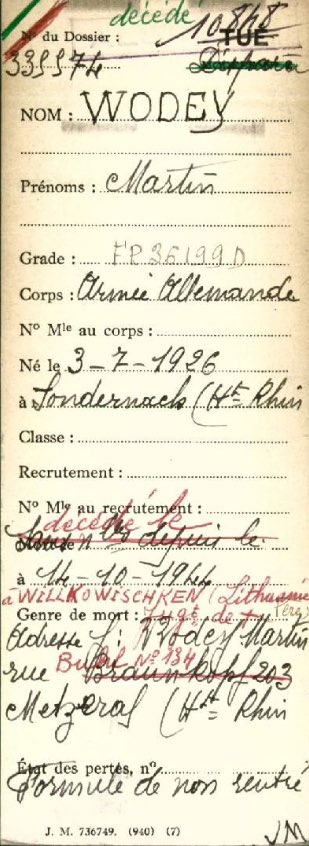 décédé
10848
N° du Dossier :
TUÉ
3355 74
NOM : WODEY
Prénoms : Martin
Grade : FP 36199 D
Corps : Armée Allemande
N° Mle au corps :
Né le 3-7-1926
à Sondernach (Ht Rhin
Classe :
Recrutement :
N° Mle au recrutement :
décédé le
depuis le
à 14-10-1944
à WILLKOWISCHKEN (Lithuanie
Genre de mort : Jugt de
Adresse Wodey Martin
rue Braunkopf 203
N° 134
Metzeral (Ht Rhin
État des pertes, n°
Formule de non rentré
J. M. 736749. (940) (7)
JM